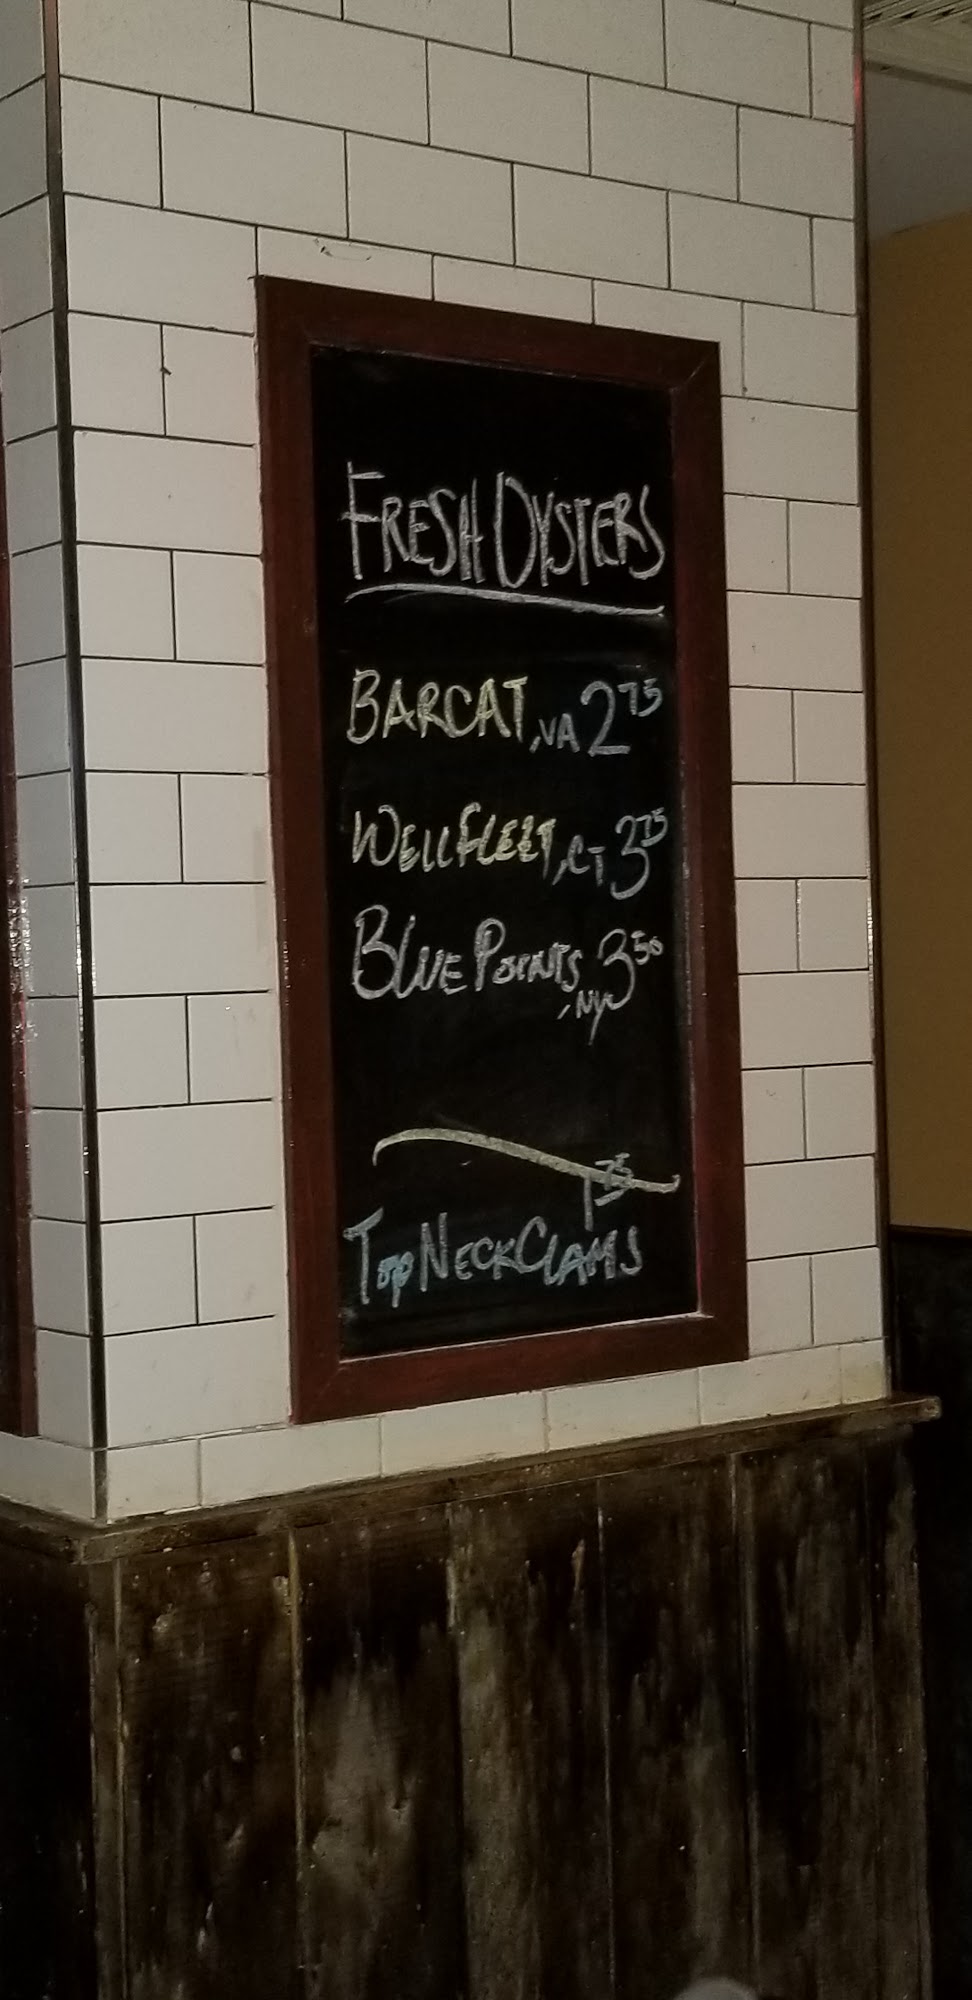 FRESH OYSTERS
BARCAT, VA 2 75
WELLFLEET, CT 3 75
BLUE POINTS, NY 3 50
1 75
TOP NECK CLAMS